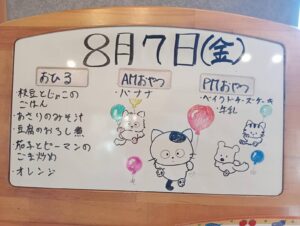 8月7日(金)
おひる
・枝豆とじゃこの
ごはん
・あさりのみそ汁
・豆腐のおろし煮
・茄子とピーマンの
ごま炒め
・オレンジ
AMおやつ
・バナナ
PMおやつ
・ベイクドチーズケーキ
・牛乳